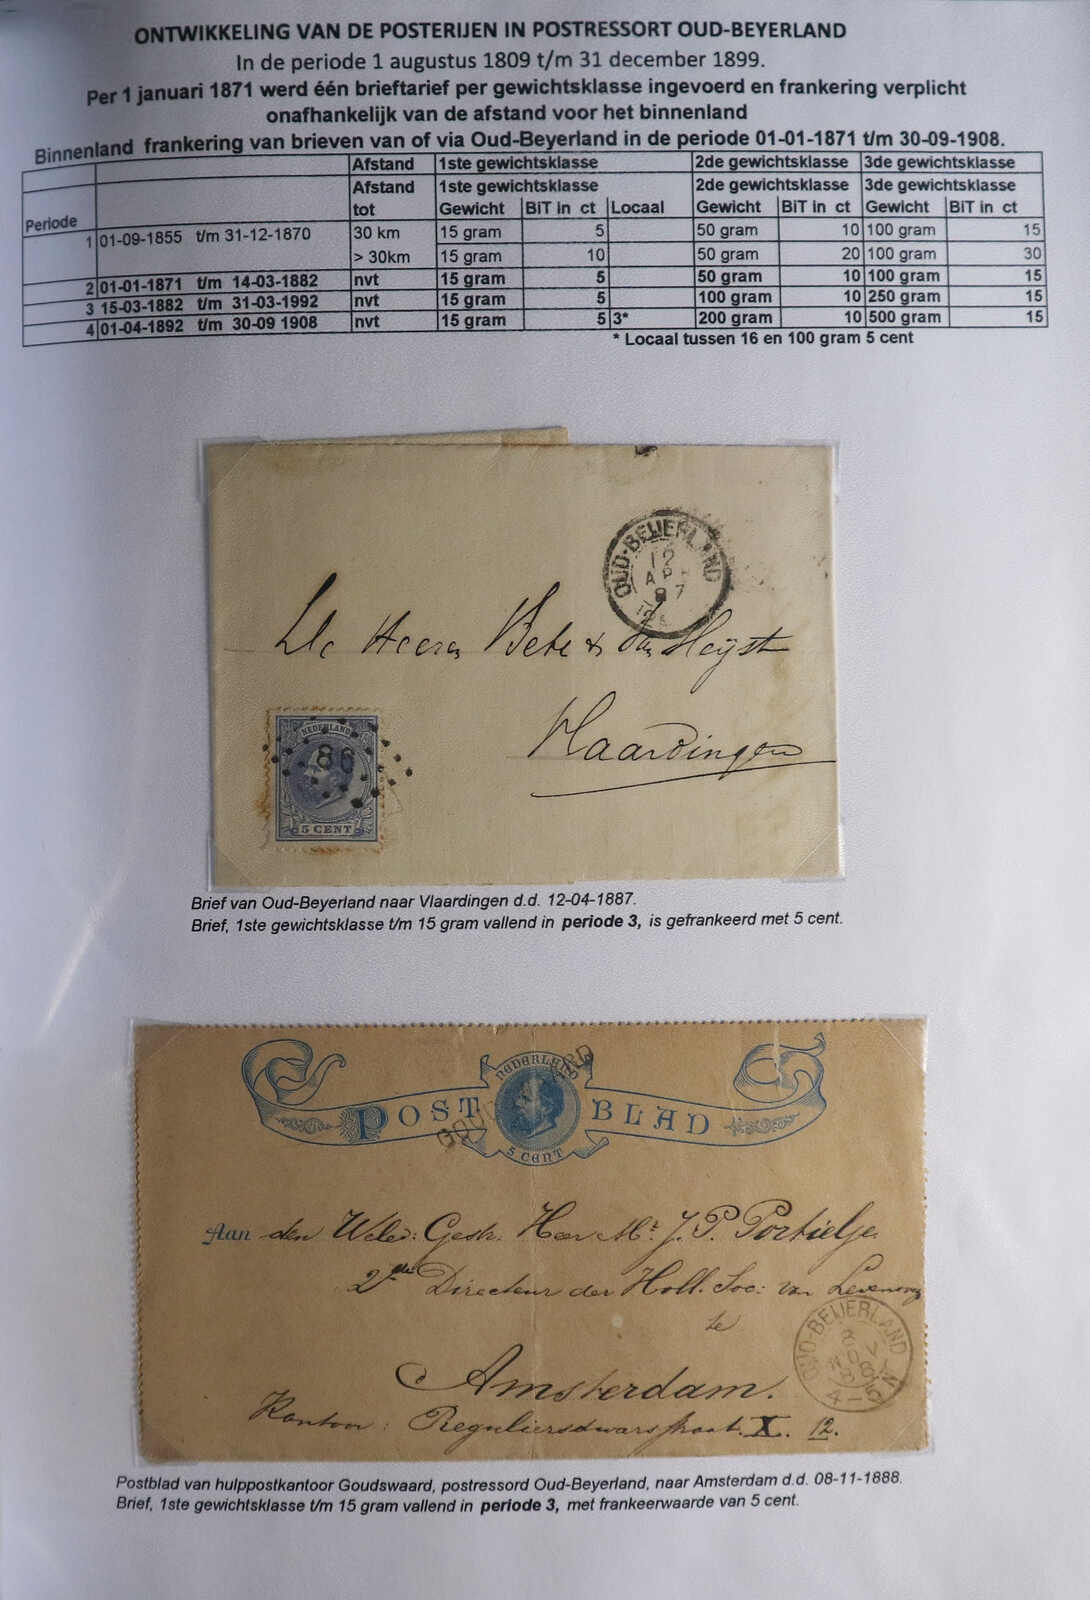 ONTWIKKELING VAN DE POSTERIJEN IN POSTRESSORT OUD-BEYERLAND
In de periode 1 augustus 1809 t/m 31 december 1899.
Per 1 januari 1871 werd één brieftarief per gewichtsklasse ingevoerd en frankering verplicht
onafhankelijk van de afstand voor het binnenland
Binnenland frankering van brieven van of via Oud-Beyerland in de periode 01-01-1871 t/m 30-09-1908.
Afstand 1ste gewichtsklasse 2de gewichtsklasse 3de gewichtsklasse
Afstand 1ste gewichtsklasse 2de gewichtsklasse 3de gewichtsklasse
Periode tot Gewicht BiT in ct Locaal Gewicht BiT in ct Gewicht BiT in ct
1 01-09-1855 t/m 31-12-1870 30 km 15 gram 5 50 gram 10 100 gram 15
> 30km 15 gram 10 50 gram 20 100 gram 30
2 01-01-1871 t/m 14-03-1882 nvt 15 gram 5 50 gram 10 100 gram 15
3 15-03-1882 t/m 31-03-1992 nvt 15 gram 5 100 gram 10 250 gram 15
4 01-04-1892 t/m 30-09 1908 nvt 15 gram 5 3* 200 gram 10 500 gram 15
* Locaal tussen 16 en 100 gram 5 cent
OUD-BEIJERLAND
12
APR
87
De Heeren Bete & Van Heijst
Vlaardingen
NEDERLAND
86
5 CENT
Brief van Oud-Beyerland naar Vlaardingen d.d. 12-04-1887.
Brief, 1ste gewichtsklasse t/m 15 gram vallend in periode 3, is gefrankeerd met 5 cent.
NEDERLAND
POSTBLAD
5 CENT
Aan den Weled: Gestr. Heer Mr. J. P. Portielje
2de Directeur der Holl. Soc: van Levensverz
te
OUD-BEIJERLAND
Amsterdam.
Kantoor: Reguliersdwarsstraat X. 12.
Postblad van hulppostkantoor Goudswaard, postressord Oud-Beyerland, naar Amsterdam d.d. 08-11-1888.
Brief, 1ste gewichtsklasse t/m 15 gram vallend in periode 3, met frankeerwaarde van 5 cent.